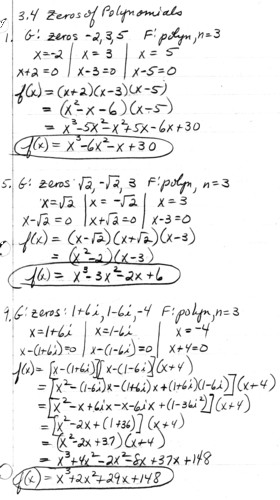 3.4 Zeros of Polynomials
1. G: zeros -2,3,5 F: polyn, n=3
x=-2 | x=3 | x=5
x+2=0 | x-3=0 | x-5=0
f(x)=(x+2)(x-3)(x-5)
=(x²-x-6)(x-5)
=x³-5x²-x²+5x-6x+30
f(x)=x³-6x²-x+30
5. G: zeros: √2, -√2, 3 F: polyn, n=3
x=√2 | x=-√2 | x=3
x-√2=0 | x+√2=0 | x-3=0
f(x)=(x-√2)(x+√2)(x-3)
=(x²-2)(x-3)
f(x)=x³-3x²-2x+6
9. G: zeros: 1+6i, 1-6i, -4 F: polyn, n=3
x=1+6i | x=1-6i | x=-4
x-(1+6i)=0 | x-(1-6i)=0 | x+4=0
f(x)=[x-(1+6i)][x-(1-6i)](x+4)
=[x²-(1-6i)x-(1+6i)x+(1+6i)(1-6i)](x+4)
=[x²-x+6ix-x-6ix+(1-36i²)](x+4)
=[x²-2x+(1+36)](x+4)
=(x²-2x+37)(x+4)
=x³+4x²-2x²-8x+37x+148
f(x)=x³+2x²+29x+148